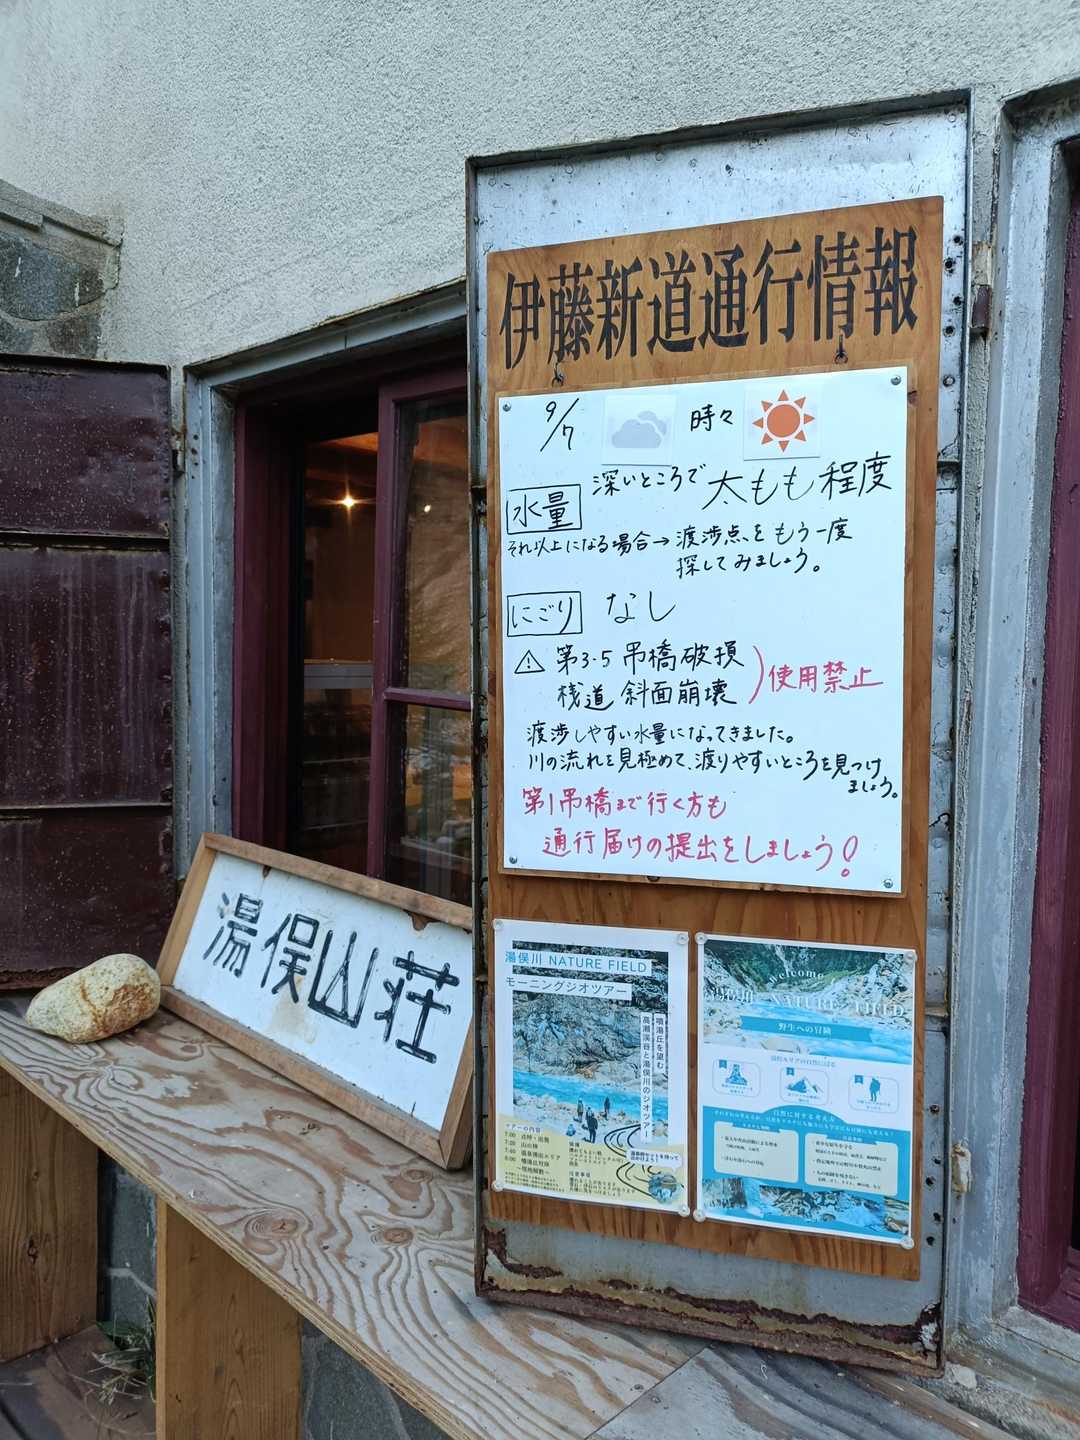 伊藤新道通行情報
9/7 時々
水量 深いところで 太もも程度
それ以上になる場合→渡渉点をもう一度
探してみましょう。
にごり なし
⚠ 第3・5吊橋破損
桟道 斜面崩壊
使用禁止
渡渉しやすい水量になってきました。
川の流れを見極めて、渡りやすいところを見つけ
ましょう。
第1吊橋まで行く方も
通行届けの提出をしましょう!
湯俣山荘
湯俣川 NATURE FIELD
モーニングジオツアー
噴湯丘を望む
高瀬渓谷と湯俣川のジオツアー
ツアーの内容
Welcome
湯俣川 NATURE FIELD
野生への冒険
自然に対する考え方